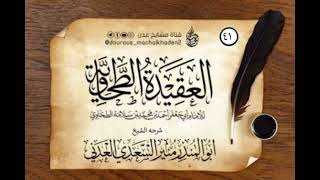 قناة مشايخ عدن
@dourous_machaikhaden2
٤١
العقيدة الطحاوية
للإمام أبي جعفر أحمد بن محمد بن سلامة الطحاوي
شرحه الشيخ
أبو المنذر منير السعدي العدني